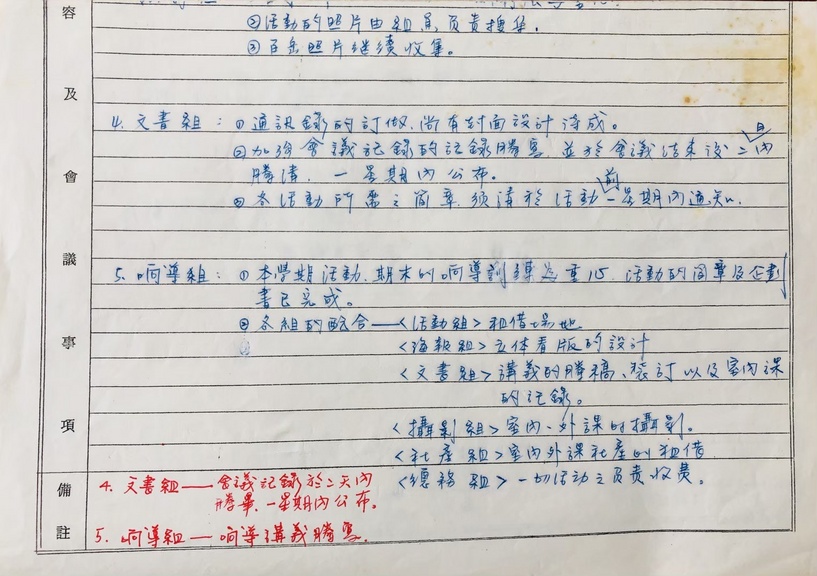 容及會議事項
②活動的照片由組員負責搜集.
③百岳照片繼續收集。
4. 文書組：①通訊錄的訂做.尚有封面設計待成。
②加強會議記錄的記錄謄寫.並於會議結束後二日內
謄清.一星期內公布。
③各活動所需之簡章.須請於活動前一星期內通知.
5. 嚮導組：①本學期活動.期末的嚮導訓練為重心.活動的簡章及企劃
書已完成。
②各組的配合—<活動組>租借場地
<海報組>立体看版的設計
<文書組>講義的謄稿、裝訂以及室內課
的記錄。
<攝影組>室內、外課的攝影。
<社產組>室內外課社產的租借
<總務組>一切活動之負責收費。
備註
4. 文書組——會議記錄於二天內
謄畢.一星期內公布。
5. 嚮導組—嚮導講義謄寫.